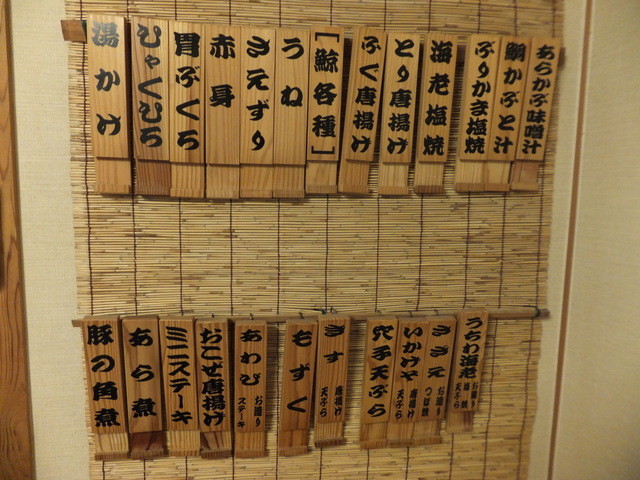 あらかぶ味噌汁
鯛かぶと汁
ぶりかま塩焼
海老塩焼
とり唐揚げ
ふぐ唐揚げ
［鯨各種］
うね
さえずり
赤身
胃ぶくろ
ひゃくひろ
湯かけ
うちわ海老
お造り
塩焼
天ぷら
さざえ
お造り
つぼ焼
いかげそ
唐揚げ
天ぷら
穴子天ぷら
きす
唐揚げ
天ぷら
もずく
あわび
お造り
ステーキ
おこぜ唐揚げ
ミニステーキ
あら煮
豚の角煮